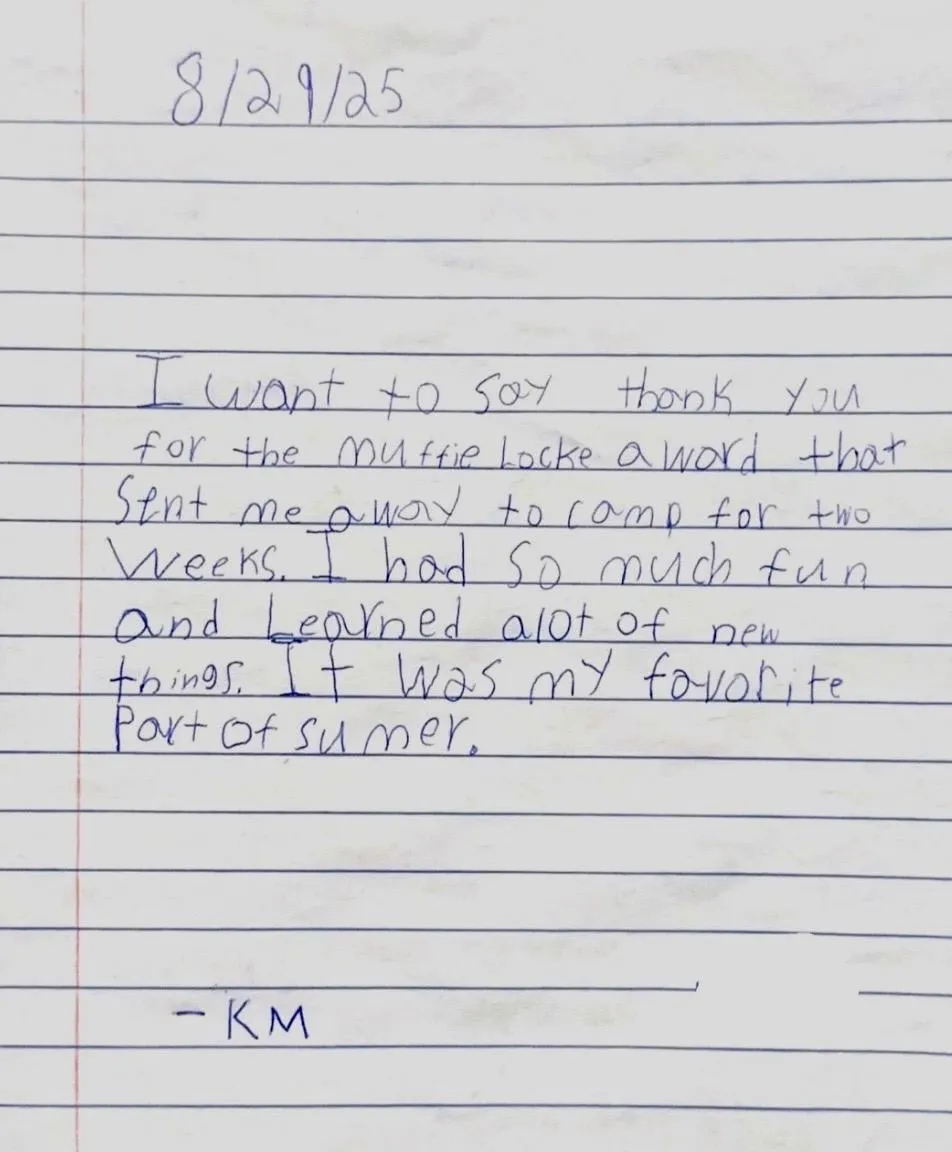 8/29/25
I want to say thank you
for the Muffie Locke award that
Sent me away to camp for two
Weeks. I had so much fun
and Learned alot of new
things. It was my favorite
Part of sumer.
- KM